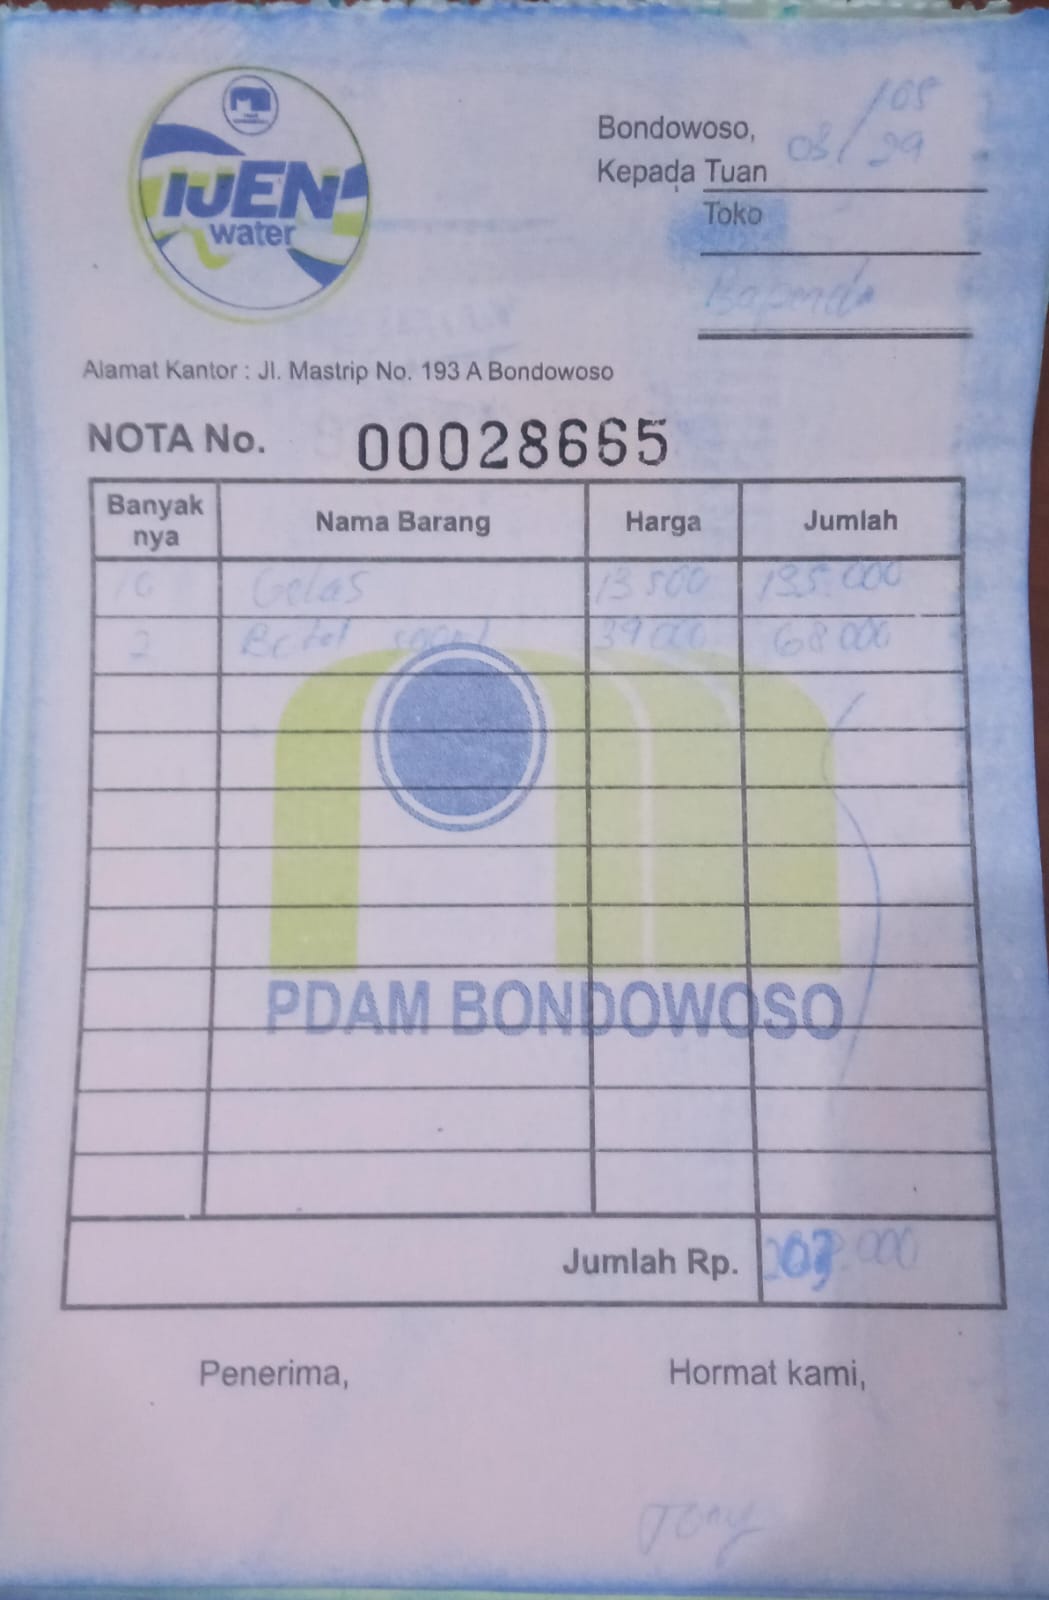 IJEN
water
Bondowoso, 03/05
Kepada Tuan
Toko
Bapenda
Alamat Kantor : Jl. Mastrip No. 193 A Bondowoso
NOTA No. 00028665
Banyak nya Nama Barang Harga Jumlah
10 Gelas 13 500 135.000
2 Botol 68 000
PDAM BONDOWOSO
Jumlah Rp. 203.000
Penerima, Hormat kami,
Tony